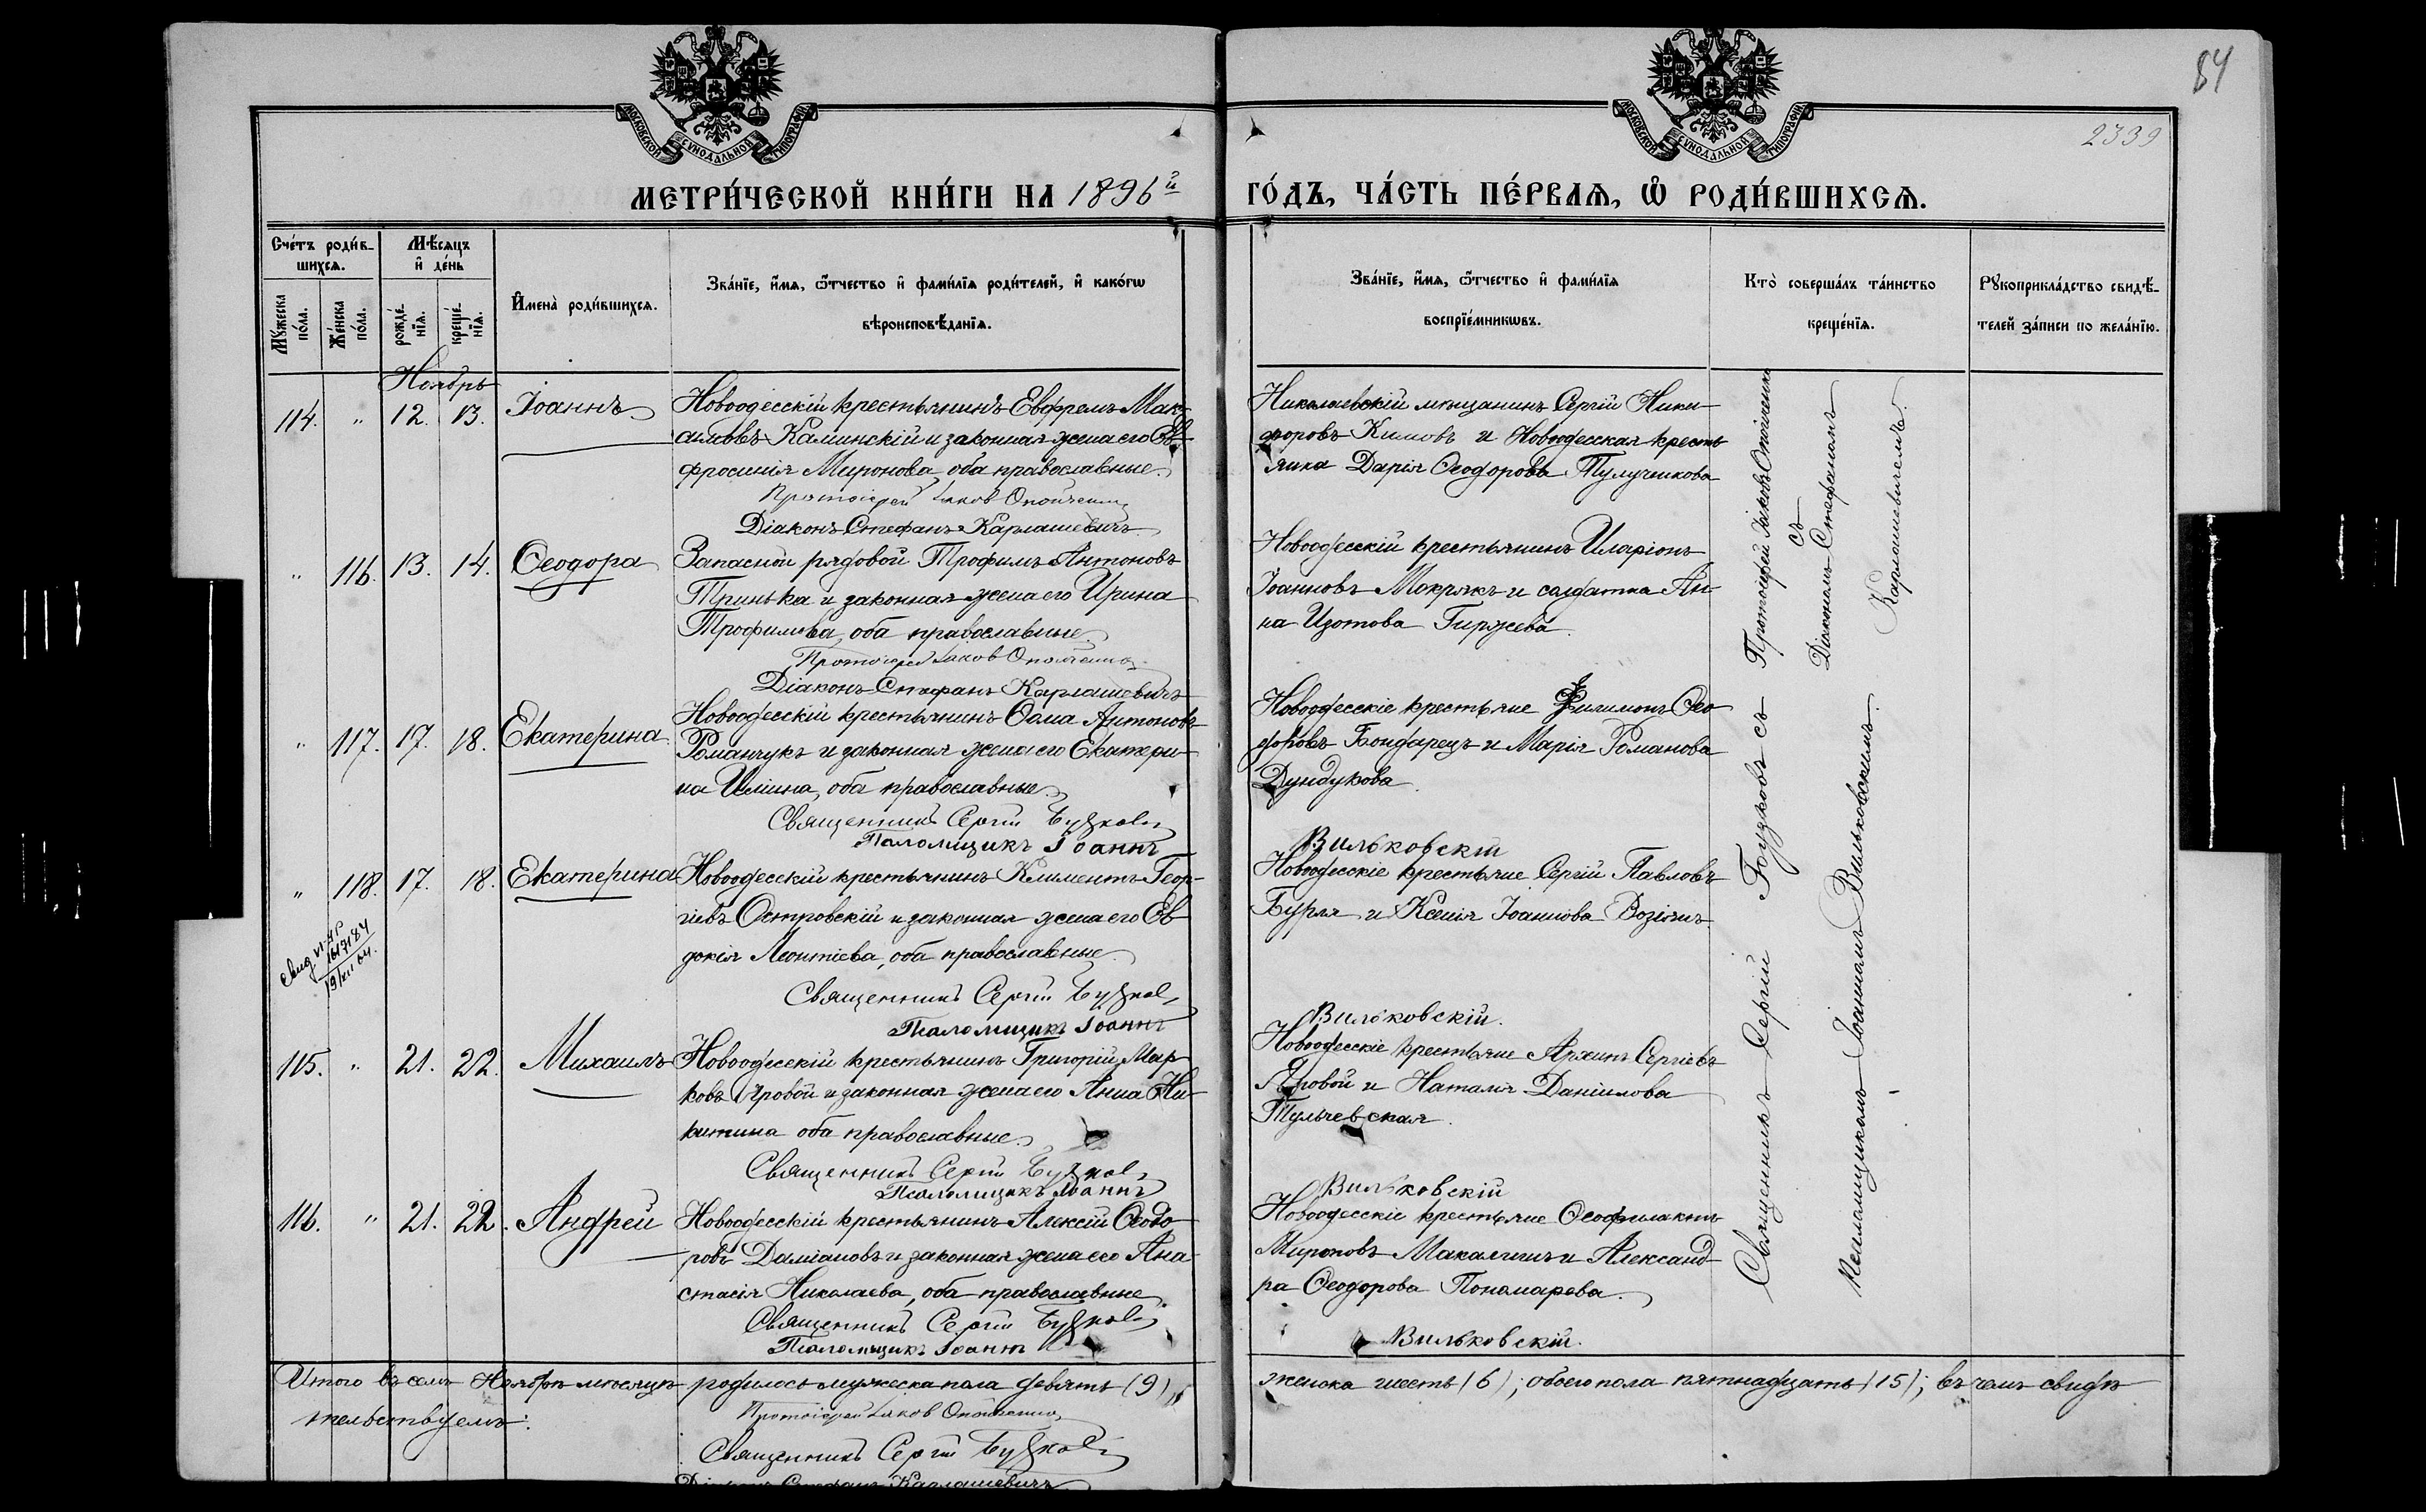 84
2339
МОСКОВСКОЙ СѴНОДАЛЬНОЙ ТИПОГРАФІИ
МОСКОВСКОЙ СѴНОДАЛЬНОЙ ТИПОГРАФІИ
МЕТРИ́ЧЕСКОЙ КНИ́ГИ НА 1896й ГО́ДЪ, ЧА́СТЬ ПЕ́РВАЯ, Ѡ РОДИ́ВШИХСЯ.
Сче́тъ роди́в-
шихсѧ.
Мѣ́сяцъ
и҆ де́нь
Мꙋ́жеска по́ла.
Же́нска по́ла.
рожде́-
нїѧ.
креще́-
нїѧ.
И҆мена̀ роди́вшихсѧ.
Зва́нїе, и҆́мѧ, ѻ҆́тчество и҆ фами́лїѧ роди́телей, и҆ како́гѡ
вѣроисповѣ́данїѧ.
Зва́нїе, и҆́мѧ, ѻ҆́тчество и҆ фами́лїѧ
воспрїе́мникѡвъ.
Кто̀ соверша́лъ та́инство
креще́нїѧ.
Рꙋкоприкла́дство свидѣ́-
телей за́писи по жела́нїю.
Ноябрь
114. " 12. 13. Іоаннъ
Новоодесскій крестьянинъ Евфремъ Мак-
симовъ Каминскій и законная жена его Ев-
фросинія Миронова, оба православные.
Протоіерей Іаковъ Опойченко
Діаконъ Стефанъ Карлашевичъ
Николаевскій мѣщанинъ Сергій Ники-
форовъ Кимовъ и Новоодесская кресть
янка Дарія Ѳеодорова Тулучикова
Протоіерей Іаковъ Опойченко
съ
Діакономъ Стефаномъ
Карлашевичемъ.
" 116. 13. 14. Ѳеодора
Запасной рядовой Трофимъ Антоновъ
Тринька и законная жена его Ирина
Трофимова, оба православные.
Протоіерей Іаковъ Опойченко
Діаконъ Стефанъ Карлашевичъ
Новоодесскій крестьянинъ Иларіонъ
Іоанновъ Мокрякъ и солдатка Ан-
на Изотова Гиржева.
" 117. 17. 18. Екатерина
Новоодесскій крестьянинъ Ѳома Антоновъ
Романчукъ и законная жена его Екатери-
на Иліина, оба православные.
Священникъ Сергій Буцковъ
Псаломщикъ Іоаннъ Вильковскій
Новоодесскіе крестьяне Филимонъ Ѳео
доровъ Бондарецъ и Марія Романова
Дундукова.
Священникъ Сергій Буцковъ съ
псаломщикомъ Іоанномъ Вильковскимъ.
" 118. 17. 18. Екатерина
Новоодесскій крестьянинъ Климентъ Геор-
гіевъ Островскій и законная жена его Ев-
докія Леонтіева, оба православные.
Священникъ Сергій Буцковъ
Псаломщикъ Іоаннъ Вильковскій.
Новоодесскіе крестьяне Сергій Павловъ
Бурля и Ксенія Іоаннова Возіянъ.
115. " 21. 22. Михаилъ
Новоодесскій крестьянинъ Григорій Мар-
ковъ Яровой и законная жена его Анна Ни-
китина оба православные.
Священникъ Сергій Буцковъ
Псаломщикъ Іоаннъ Вильковскій
Новоодесскіе крестьяне Архипъ Сергіевъ
Яровой и Наталія Даніилова
Тульчевская.
116. " 21. 22. Андрей
Новоодесскій крестьянинъ Алексій Ѳеодо-
ровъ Даміановъ и законная жена его Ана-
стасія Николаева, оба православные.
Священникъ Сергій Буцковъ
Псаломщикъ Іоаннъ Вильковскій.
Новоодесскіе крестьяне Ѳеофилактъ
Мироновъ Макалишъ и Александ-
ра Ѳеодорова Пономарева.
Итого въ семъ Ноябрѣ мѣсяцѣ родилось мужеска пола девять (9), женска шесть (6); обоего пола пятнадцать (15); въ чемъ свидѣ
тельствуемъ:
Протоіерей Іаковъ Опойченко
Священникъ Сергій Буцковъ
Діаконъ Стефанъ Карлашевичъ